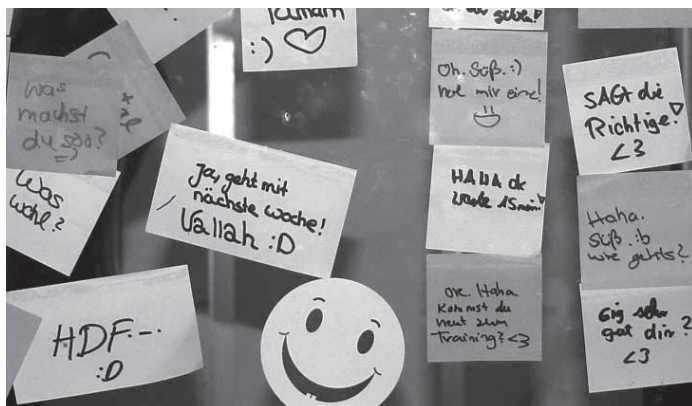 :) ♡
Was
machst
du soo?
=)
Was
wohl?
Ja, geht mit
nächste woche!
Vallah :D
HDF-.-
:D
Oh. Süß. :)
hol mir eine!
HAHA ok
15min
OK. Haha.
Kommst du
heut zum
Training? <3
SAGt die
Richtige!
<3
Haha.
süß. :b
wie gehts?
Eig sehr
gut dir?
<3